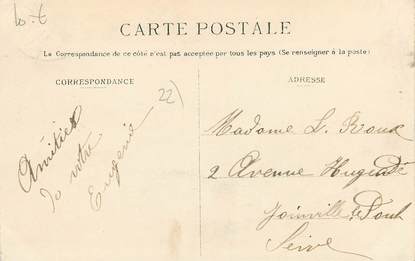 CARTE POSTALE
La Correspondance de ce côté n'est pas acceptée par tous les pays (Se renseigner à la poste)
CORRESPONDANCE
ADRESSE
22)
Amitiés
votre
Eugénie
Madame L. Rioux
2 Avenue
Joinville le Pont
Seine